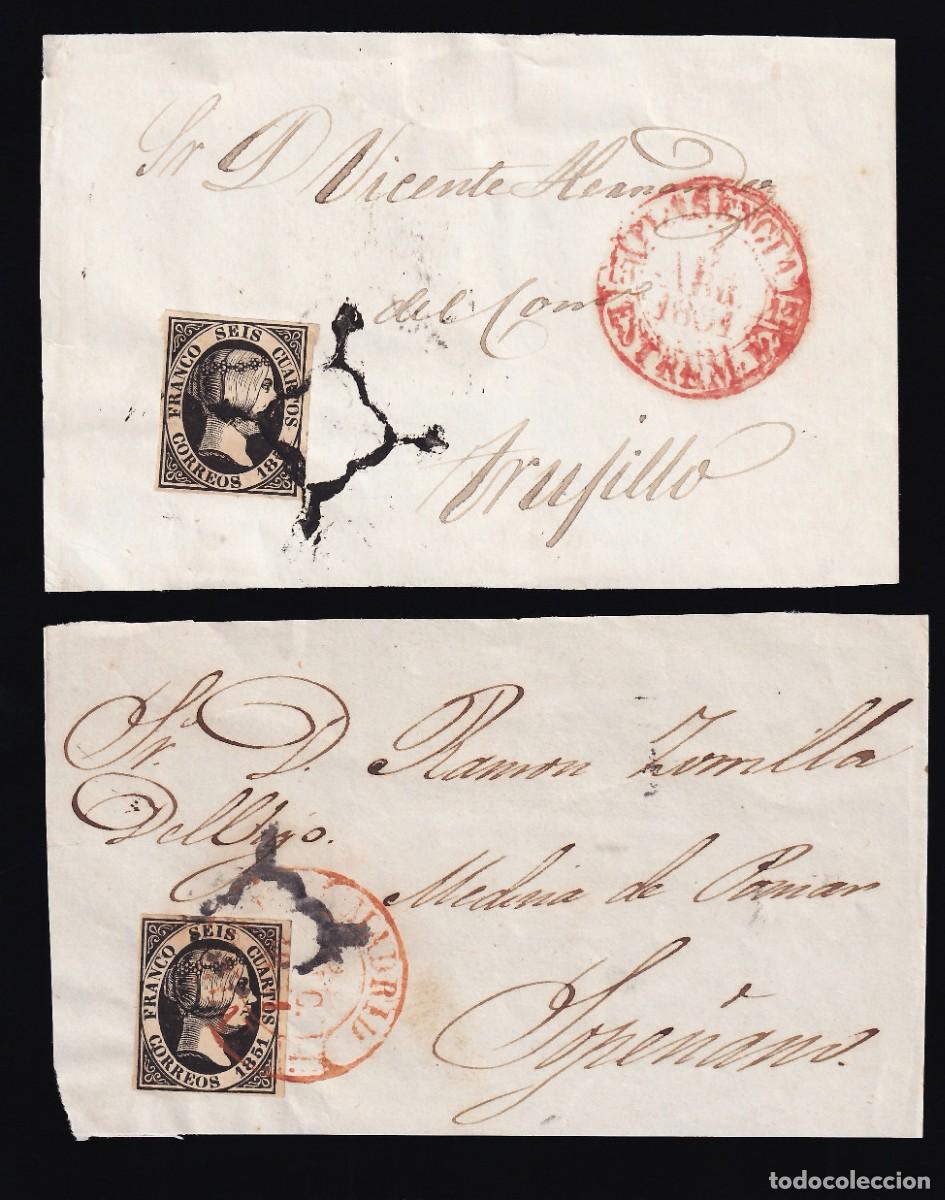 Sr D Vicente Hernandez
PLASENCIA
1851
ESTREM.
del Com
FRANCO SEIS CUARTOS
CORREOS 185
Trujillo
Sr. D. Ramon Zorrilla
Del Vijo.
Medina de Pomar
MADRID
FRANCO SEIS CUARTOS
CORREOS 1851
Sopeñano.
todocoleccion